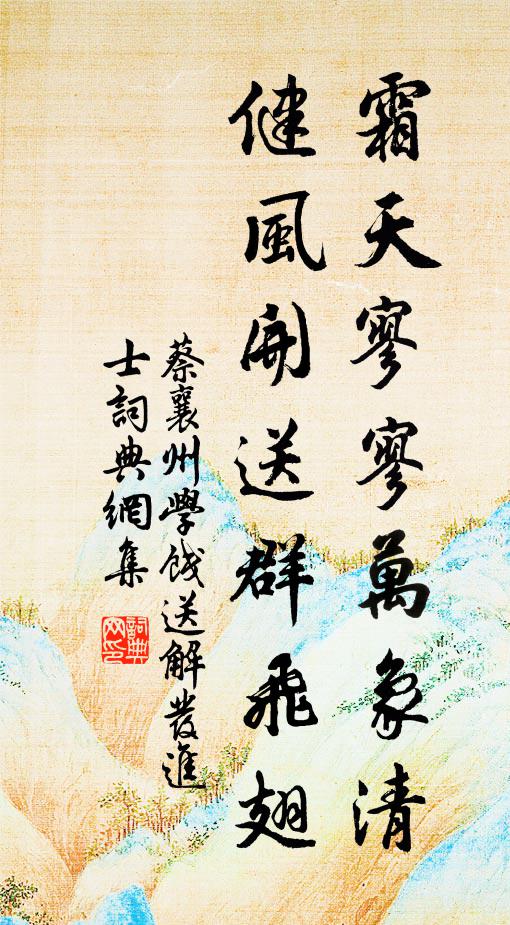 霜天寥寥萬象清
健風開送群飛翅
蔡襄州學餞送解發進
士詞典網集
詞典
网印